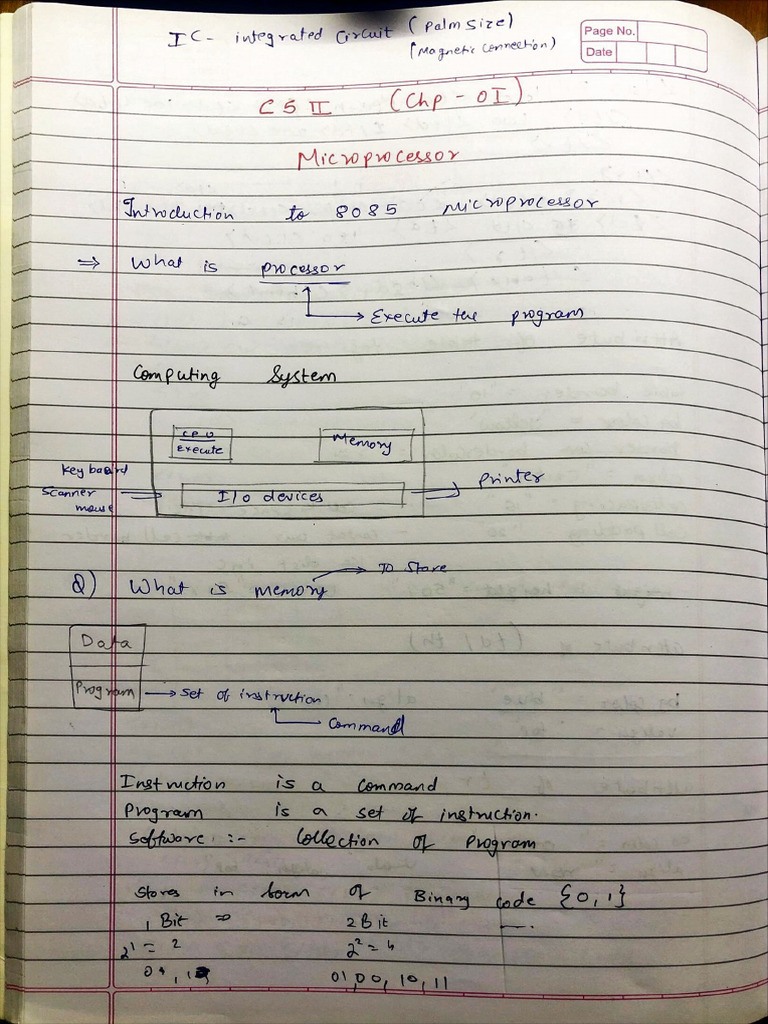 IC - integrated Circuit (palm size)
(Magnetic Connection)
Page No.
Date
CS II (Chp - 01)
Microprocessor
Introduction to 8085 Microprocessor
⇒ What is processor
→ Execute the program
Computing System
CPU
Execute
Memory
Keyboard
Scanner
mouse
I/o devices
Printer
Q) What is memory → To store
Data
Program → Set of instruction
Command
Instruction is a command
Program is a set of instruction.
Software :- Collection of Program
Stores in form of Binary code {0, 1}
1 Bit ⇒ 2 Bit —.
2¹ = 2 2² = 4
01, 00, 10, 11